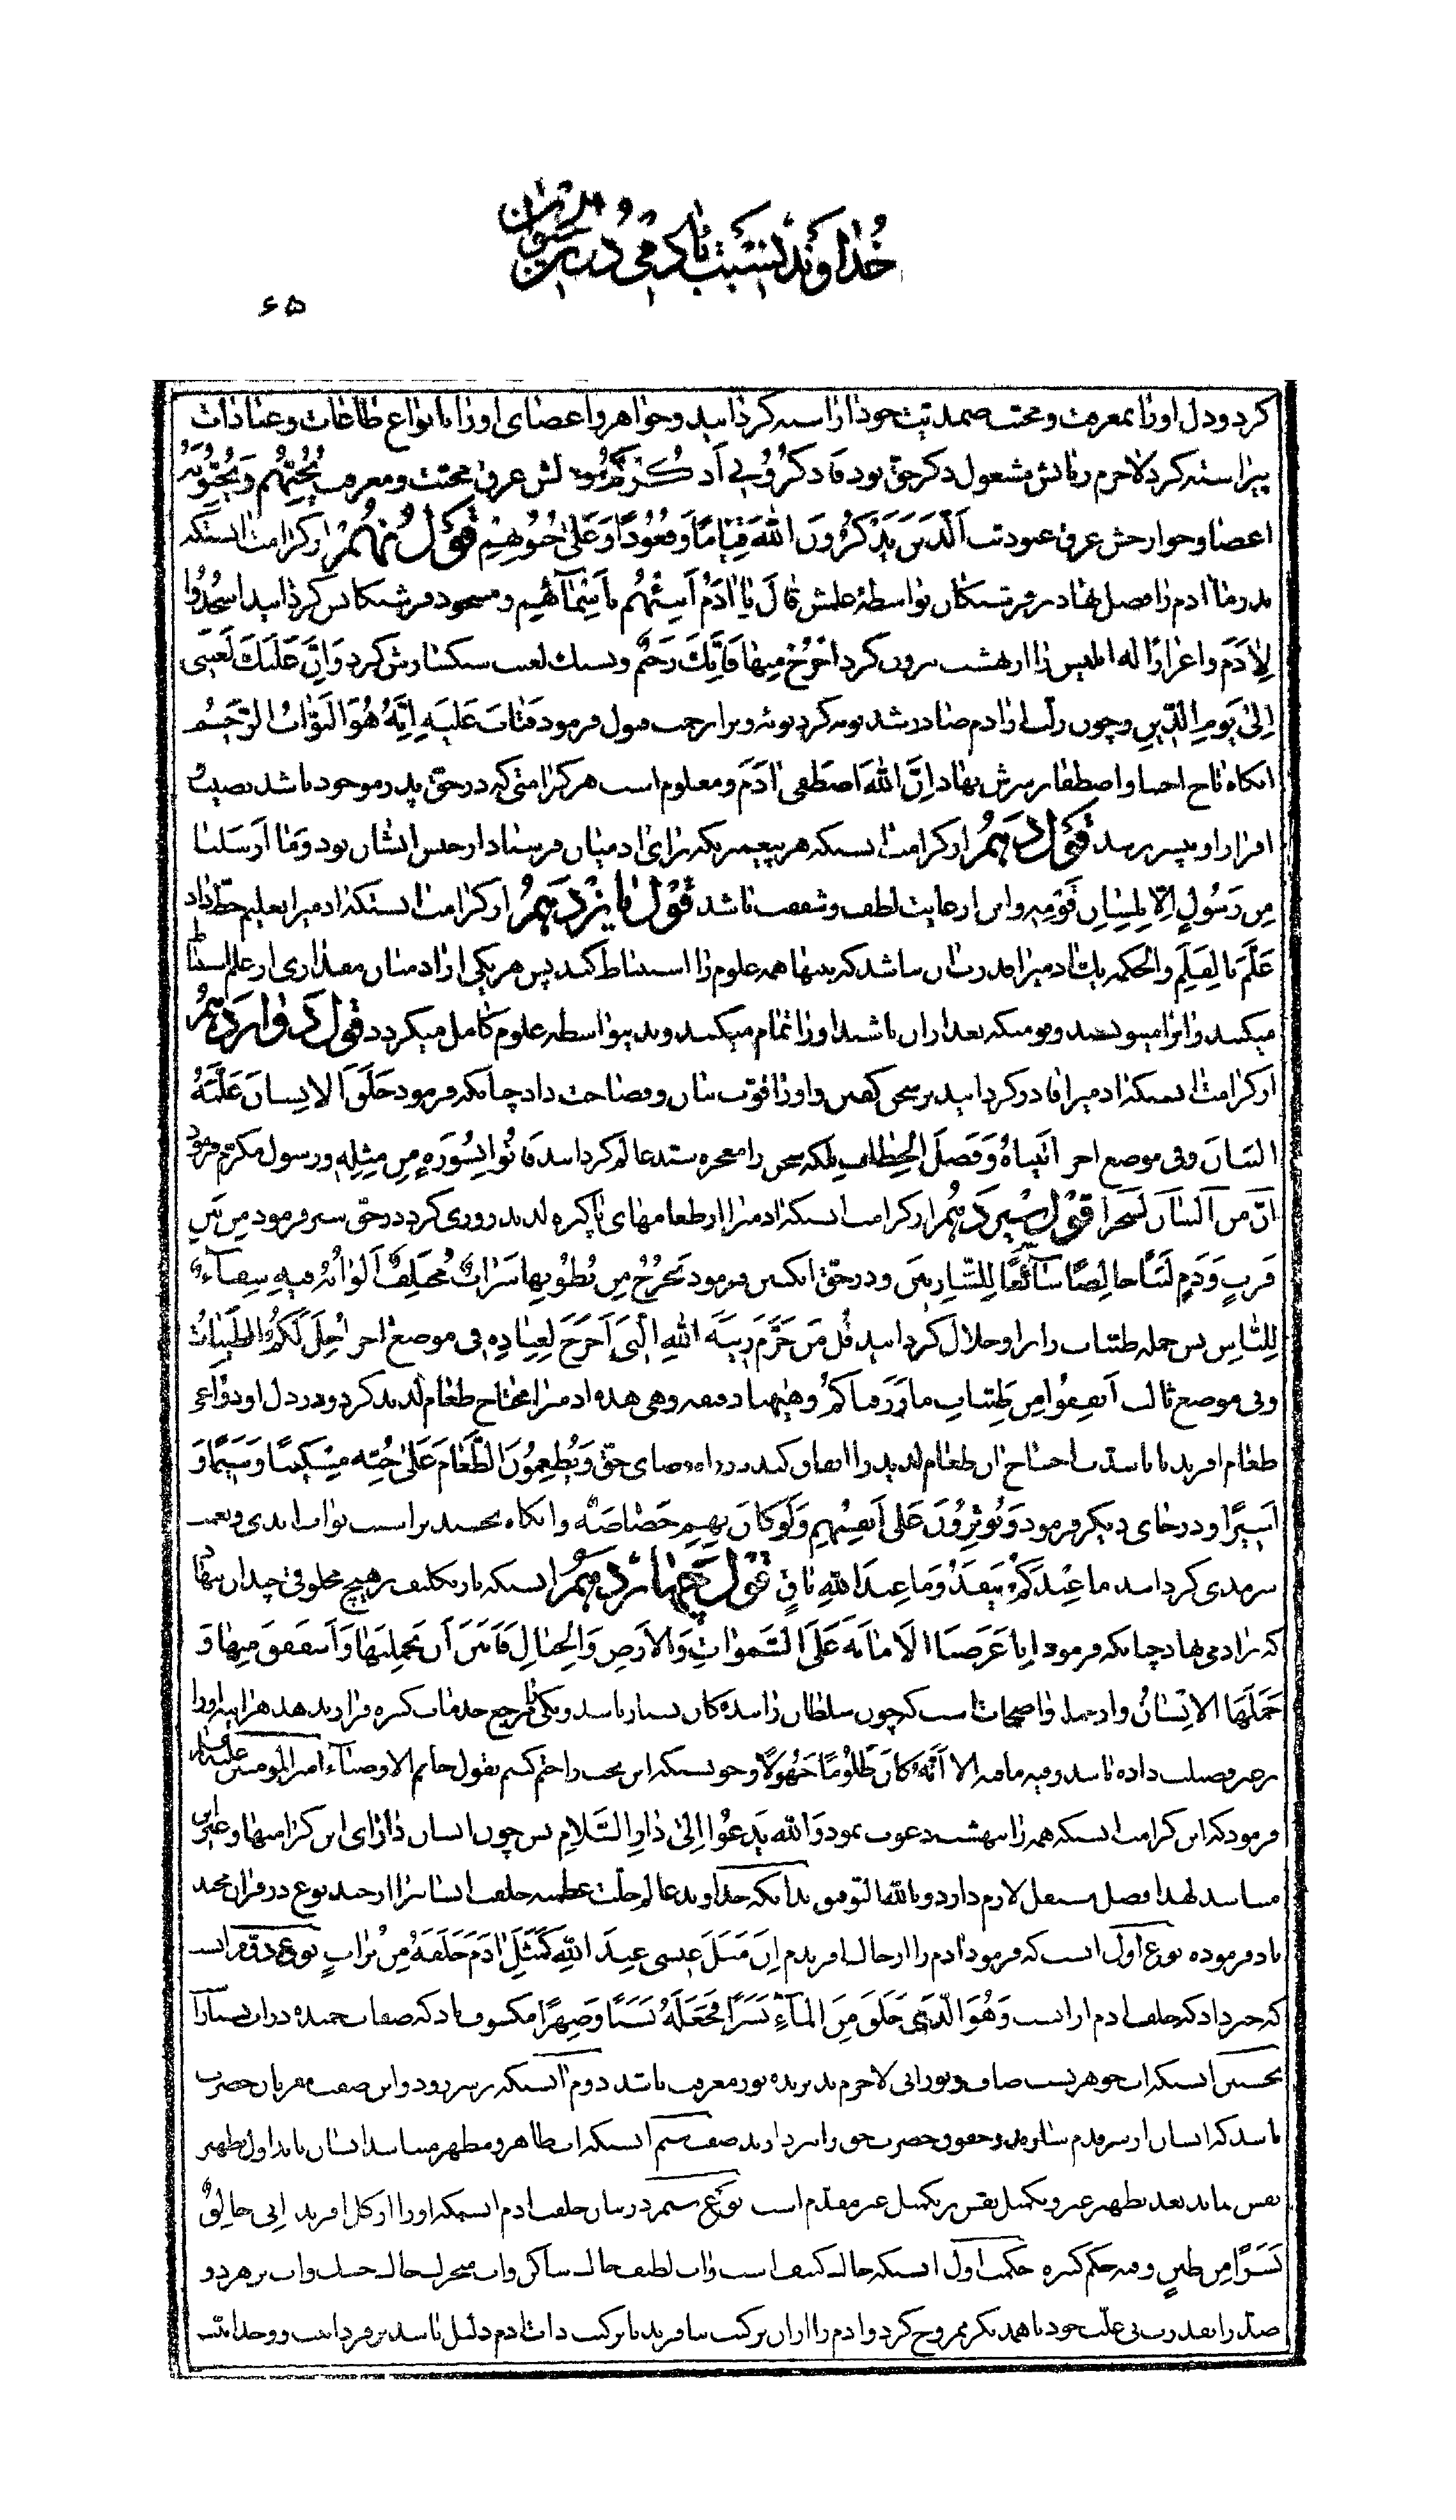 خداوند نسبت باکرمی دربیان
۶۵
کرد و دل او را بمعرفت و محبت صمدیت خود اراسته کردانید و جواهر و اعضای او را بانواع طاعات و عبادات
پیراسته کرد لاجرم زبانش مشغول ذکر حق بود فاذکرونی اذکرکم دلش غرق محبت و معرفت یحبهم و یحبونه
اعضا و جوارحش غرق عبودیت الذین یذکرون الله قیاما و قعودا و علی جنوبهم قول نهم از کرامت انستکه
پدر ما ادم را فضل نهاد بر فرشتکان بواسطه علمش قال یا ادم انبئهم باسمائهم و مسجود فرشتکانش کردانید اسجدوا
لادم و اعزازا له ابلیس را از بهشت بیرون کرد اخرج منها فانک رجیم و بسنک لعنت سنکسارش کرد و ان علیک لعنتی
الی یوم الدین و چون زلت از ادم صادر شد توبه کرد توبه ویرا رحمت قبول فرمود فتاب علیه انه هو التواب الرحیم
انکاه تاج اجتبا و اصطفا بر سرش نهاد ان الله اصطفی ادم و معلوم است هر کرامتی که در حق پدر موجود باشد نصیب
افراد او بپسر برسد قول دهم از کرامت انستکه هر پیغمبریکه برای ادمیان فرستاد از جنس ایشان بود و ما ارسلنا
من رسول الا بلسان قومه و این از غایت لطف و شفقت باشد قول یازدهم از کرامت انستکه ادمیرا تعلیم خط داد
علم بالقلم والحکمه بیک ادمیرا قدرت ان نباشد که بتنها همه علوم را استنباط کند پس هر یکی از ادمیان مقداری از علم استنباط
میکنند و انرا مینویسند و قومیکه بعد از ان باشند او را تمام میکنند و بدینواسطه علوم کامل میکردد قول دوازدهم
از کرامت انستکه ادمیرا قادر کردانید بر سخن کفتن و او را قوت بیان و فصاحت داد چنانکه فرمود خلق الانسان علمه
البیان و فی موضع اخر اتیناه و فصل الخطاب بلکه سخن را معجزه سید عالم کردانید فاتوا بسورة من مثله و رسول مکرم فرمود
ان من البیان لسحرا قول سیزدهم از کرامت انستکه ادمیرا از طعامهای پاکیزه لذیذ روزی کرد در حق شیر فرمود من بین
فرث و دم لبنا خالصا سائغا للشاربین و در حق انکبین فرمود یخرج من بطونها شراب مختلف الوانه فیه شفاء
للناس پس جمله طیبات را بر او حلال کردانید قل من حرم زینة الله التی اخرج لعباده فی موضع اخر احل لکم الطیبات
و فی موضع ثالث انفقوا من طیبات ما رزقناکم و هیهنا دقیقه و هی هذه ادمیرا محتاج طعام لذیذ کرد و در دل او دواعی
طعام افرید تا با شدت احتیاج ان طعام لذیذ را انفاق کند در راه رضای حق و یطعمون الطعام علی حبه مسکینا و یتیما و
اسیرا و در جای دیکر فرمود و یوثرون علی انفسهم و لو کان بهم خصاصة و انکاه بخشید براست ثواب ابدی و نعمت
سرمدی کردانید ما عندکم ینفد و ما عند الله باق قول چهاردهم انستکه بار تکلیف بر هیچ مخلوقی چندان ننهاد
که بر ادمی نهاد چنانکه فرمود انا عرضنا الامانة علی السموات و الارض و الجبال فابین ان یحملنها و اشفقن منها و
حملها الانسان و از جمله واضحات است که چون سلطان را بنده کان بسیار باشد و یکی را بترجیح خدمات کثیره قرار بدهد هراینه او را
فیه ما فیه الا انه کان ظلوما جهولا و خوبستکه این بحث را ختم کنم بقول خاتم الاوصیاء امیر المومنین علیه السلام
فرمود که این کرامت انستکه همه را ببهشت دعوت نمود و الله یدعوا الی دار السلام پس چون انسان دارای این کرامتها و غیر این
میباشد لهذا فصل مستقل لازم دارد و بالله التوفیق بدانکه خداوند عالم جلت عظمته خلقت انسانرا از چند نوع در قران مجید
یاد فرموده نوع اول انست که فرمود ادم را از خاک افریدم ان مثل عیسی عند الله کمثل ادم خلقه من تراب نوع دوم انست
که خبر داد که خلقت ادم از ابست و هو الذی خلق من الماء بشرا فجعله نسبا و صهرا مکشوف باد که صفات حمیده در اب بسیار است
نخستین انستکه اب جوهریست صاف و نورانی لاجرم پذیرنده نور معرفت باشد دوم انستکه
صفت سیم انستکه اب طاهر و مطهر میباشد انسان باید اول تطهیر
نفس نماید بعد تطهیر غیر و تکمیل نفس بر تکمیل غیر مقدم است نوع سیم در بیان خلقت ادم انستکه او را از کل افرید انی خالق
بشرا من طین و فیه حکم کثیره حکمت اول انستکه خاک کثیف است و اب لطیف خاک ساکن و اب متحرک خاک خشک و اب تر هر دو
ضد را بقدرت بی علت خود با همدیکر ممزوج کرد و ادم را از ان ترکیب بیافرید تا ترکیب ذات ادم دلیل باشد بر فردانیت و وحدانیت